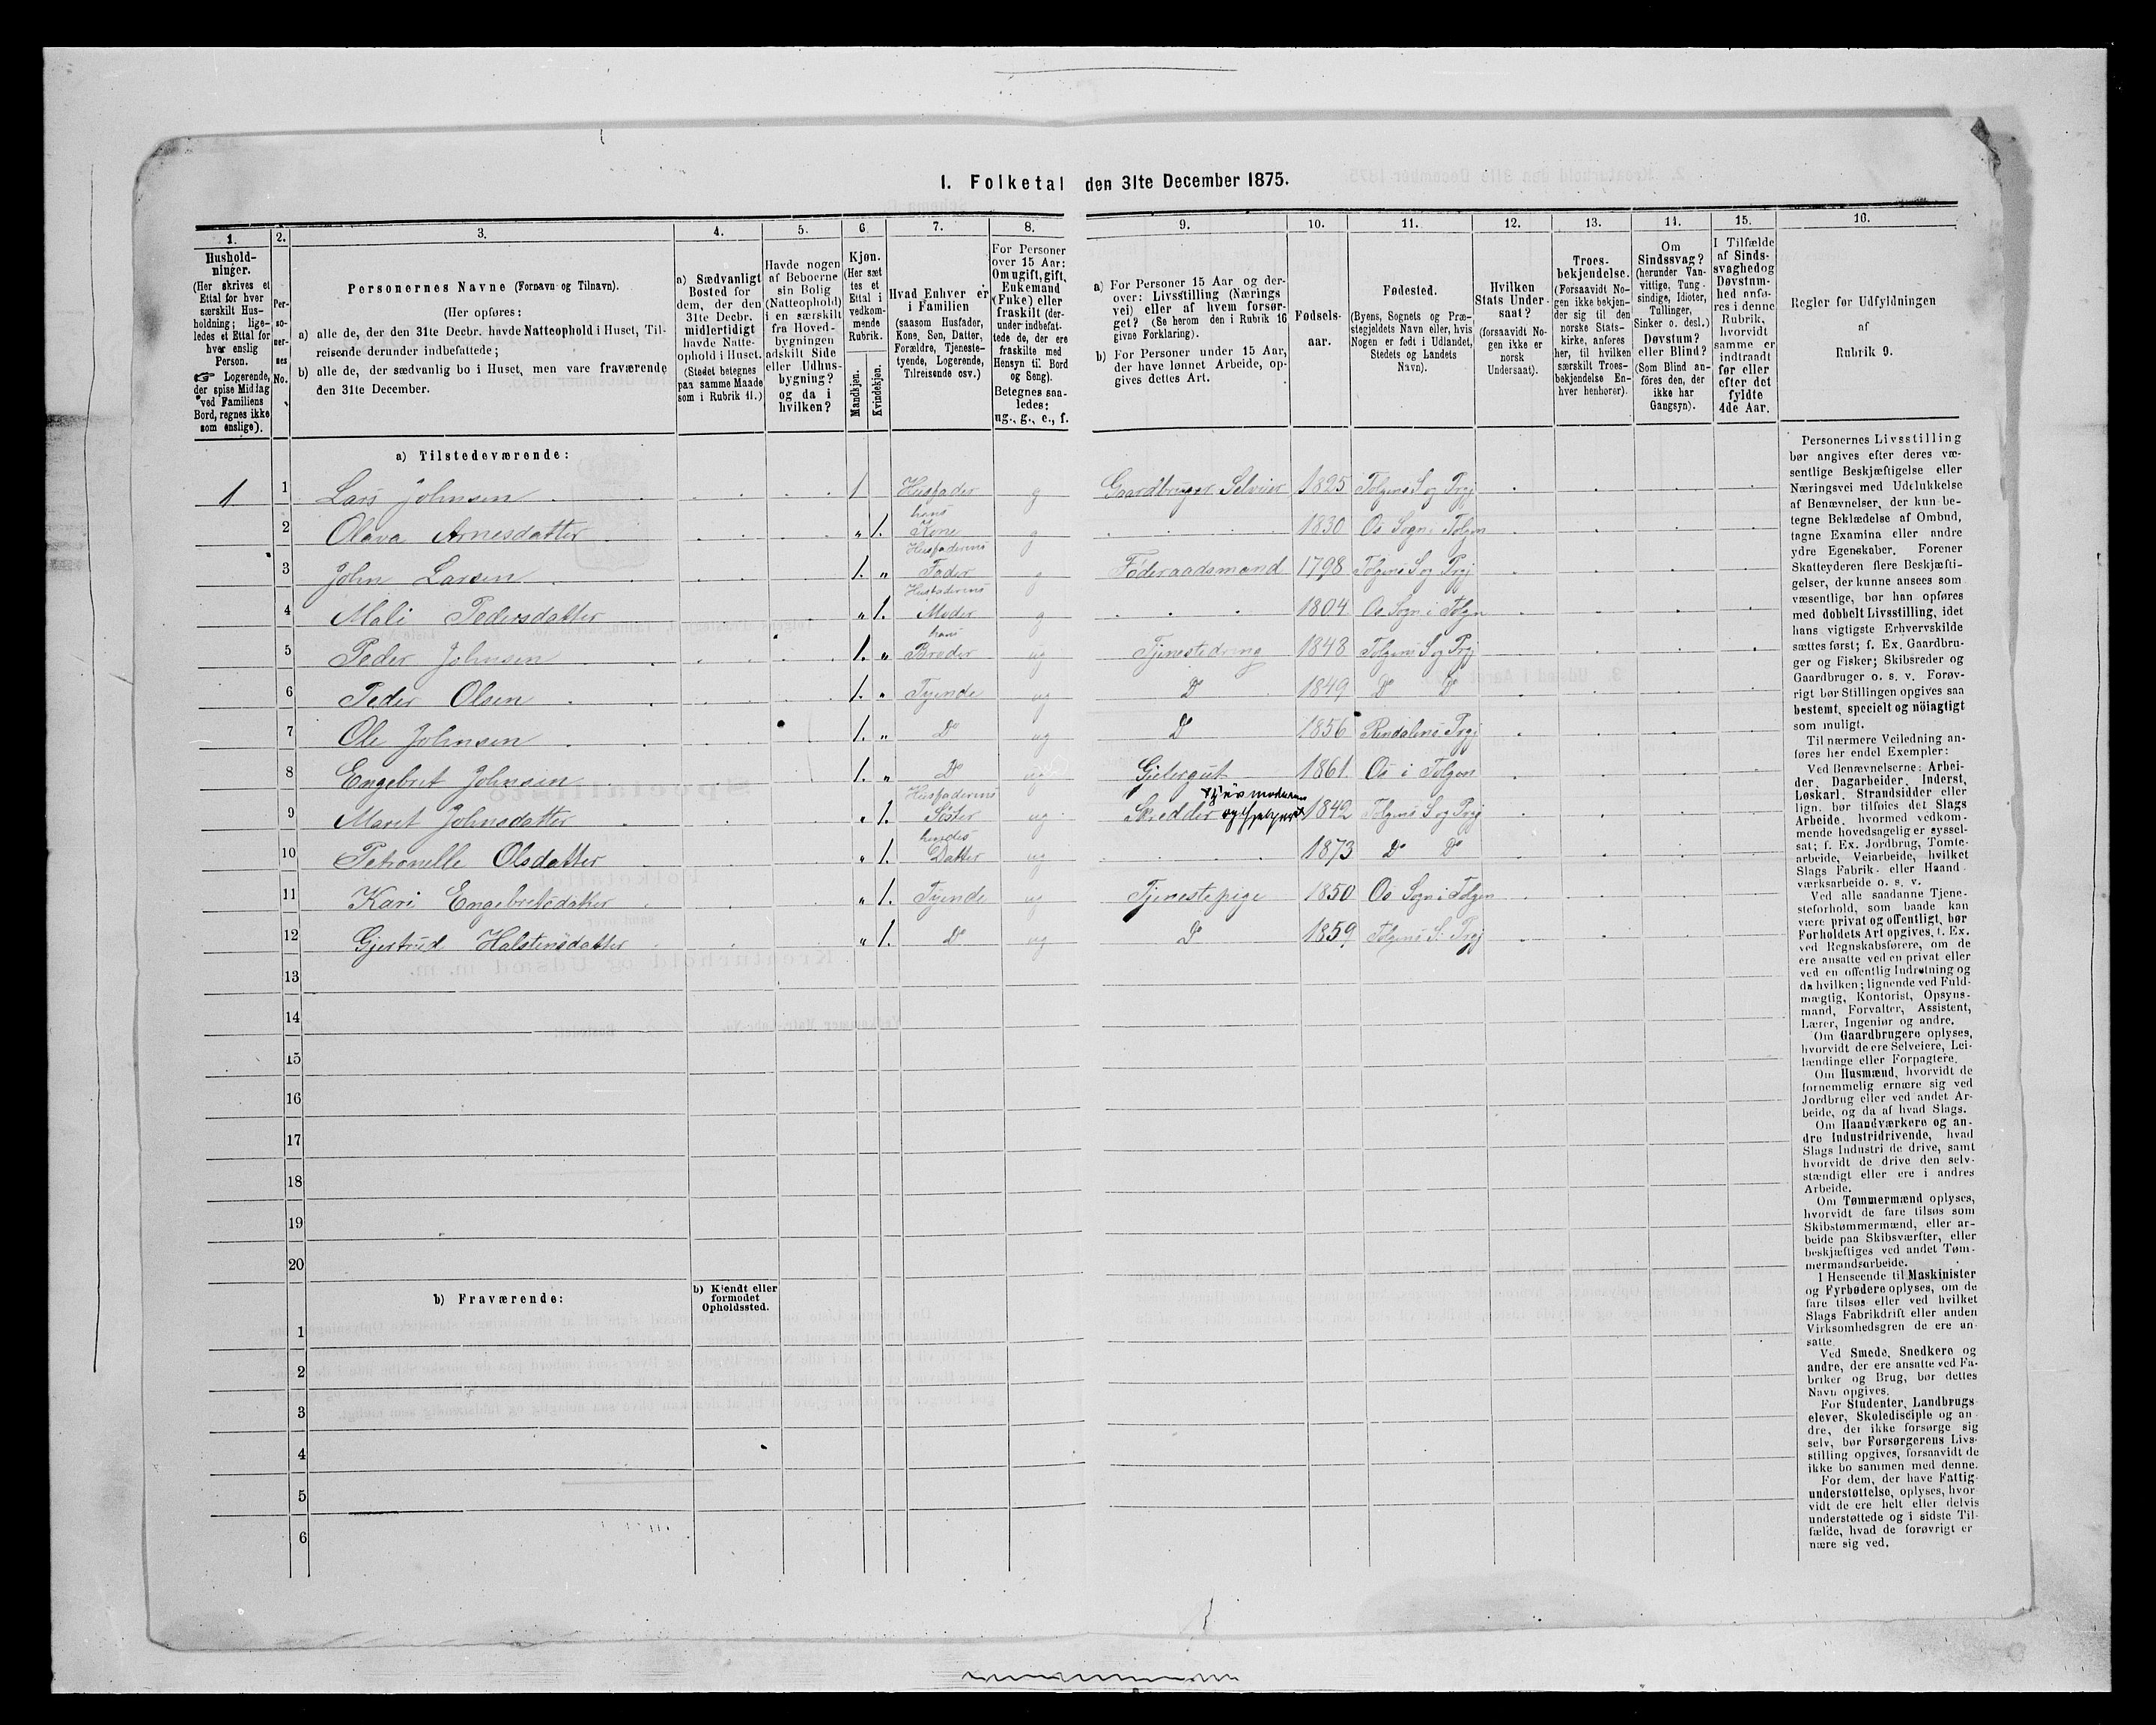 I. Folketal den 31te December 1875.
1. 2. 3. 4. 5. 6. 7. 8. 9. 10. 11. 12. 13. 14. 15. 16.
Hushold-
ninger.
(Her skrives et
Ettal for hver
særskilt Hus-
holdning; lige-
ledes et Ettal for
hver enslig
Person.
☞ Logerende,
der spise Middag
ved Familiens
Bord, regnes ikke
som enslige).
Per-
so-
ner-
nes
No.
Personernes Navne (Fornavn og Tilnavn).
(Her opføres:
a) alle de, der den 31te Decbr. havde Natteophold i Huset, Til-
reisende derunder indbefattede;
b) alle de, der sædvanlig bo i Huset, men vare fraværende
den 31te December.
a) Sædvanligt
Bosted for
dem, der den
31te Decbr.
midlertidigt
havde Natte-
ophold i Huset.
(Stedet betegnes
paa samme Maade
som i Rubrik 11.)
Havde nogen
af Beboerne
sin Bolig
(Natteophold)
i en særskilt
fra Hoved-
bygningen
adskilt Side
eller Udhus-
bygning?
og da i
hvilken?
Kjøn.
(Her sæt
tes et
Ettal i
vedkom-
mende
Rubrik.
Mandkjøn.
Kvindekjøn.
Hvad Enhver er
i Familien
(saasom Husfader,
Kone, Søn, Datter,
Forældre, Tjeneste-
tyende, Logerende,
Tilreisende osv.)
For Personer
over 15 Aar:
Om ugift, gift,
Enkemand
(Enke) eller
fraskilt (der-
under indbefat-
tede de, der ere
fraskilte med
Hensyn til Bord
og Seng).
Betegnes saa-
ledes:
ug., g., e., f.
a) For Personer 15 Aar og der-
over: Livsstilling (Nærings
vei) eller af hvem forsør-
get? (Se herom den i Rubrik 16
givne Forklaring).
b) For Personer under 15 Aar,
der have lønnet Arbeide, op-
gives dettes Art.
Fødsels-
aar.
Fødested.
(Byens, Sognets og Præ-
stegjeldets Navn eller, hvis
Nogen er født i Udlandet,
Stedets og Landets
Navn).
Hvilken
Stats Under-
saat?
(forsaavidt No-
gen ikke er
norsk
Undersaat).
Troes-
bekjendelse.
(Forsaavidt No-
gen ikke bekjen-
der sig til den
norske Stats-
kirke, anføres
her, til hvilken
særskilt Troes-
bekjendelse En-
hver henhører).
Om
Sindssvag?
(herunder Van-
vittige, Tung-
sindige, Idioter,
Tullinger,
Sinker o. desl.)
Døvstum?
eller Blind?
(Som Blind an-
føres den, der
ikke har
Gangsyn).
I Tilfælde
af Sinds-
svaghed og
Døvstum-
hed anfø-
res i denne
Rubrik,
hvorvidt
samme er
indtraadt
før eller
efter det
fyldte
4de Aar.
Regler for Udfyldningen
af
Rubrik 9.
a) Tilstedeværende:
1 1 Lars Johnsen 1 Husfader g Gaardbruger Selveier 1825 Tolgens S og Prgj
2 Olava Arnesdatter „ 1. hans Kone g 1830 Os Sogn i Tolgen
3 John Larsen 1. „ Husfaderens Fader g Føderaadsmand 1798 Tolgens S og Prgj
4 Mali Pedersdatter „ 1. Husfaderens Moder g 1804 Os Sogn i Tolgn
5 Peder Johnsen 1. „ hans Broder ug Tjenestedreng 1848 Tolgens S og Prgj
6 Peder Olsen 1. „ Tyende ug Do 1849 Do Do
7 Ole Johnsen 1. „ Do ug Do 1856 Rendalens Prgj
8 Engebret Johnsen 1. „ Do ug Gjetergut 1861 Os i Tolgen
9 Maret Johnsdatter „ 1. Husfaderens Søster ug Skredder 1842 Tolgens S og Prgj
10 Petronelle Olsdatter „ 1. hendes Datter ug 1873 Do Do
11 Kari Engebretsdatter „ 1. Tyende ug Tjenestepige 1850 Os Sogn i Tolgen
12 Gjertrud Halstensdatter „ 1. Do ug Do 1859 Tolgens S. Prgj
13
14
15
16
17
18
19
20
b) Fraværende:
b) Kjendt eller
formodet
Opholdssted.
1
2
3
4
5
6
Personernes Livsstilling
bør angives efter deres væ-
sentlige Beskjæftigelse eller
Næringsvei med Udelukkelse
af Benævnelser, der kun be-
tegne Beklædelse af Ombud,
tagne Examina eller andre
ydre Egenskaber. Forener
Skatteyderen flere Beskjæfti-
gelser, der kunne ansees som
væsentlige, bør han opføres
med dobbelt Livsstilling, idet
hans vigtigste Erhvervskilde
sættes først; f. Ex. Gaardbru-
ger og Fisker; Skibsreder og
Gaardbruger o. s. v. Forøv-
rigt bør Stillingen opgives saa
bestemt, specielt og nöiagtigt
som muligt.
Til nærmere Veiledning an-
føres her endel Exempler:
Ved Benævnelserne: Arbei-
der, Dagarbeider, Inderst,
Løskarl, Strandsidder eller
lign. bør tilføies det Slags
Arbeide, hvormed vedkom-
mende hovedsagelig er syssel-
sat; f. Ex. Jordbrug, Tomte-
arbeide, Veiarbeide, hvilket
Slags Fabrik- eller Haand
værksarbeide o. s. v.
Ved alle saadanne Tjene-
steforhold, som baade kan
være privat og offentligt, bør
Forholdets Art opgives, f. Ex.
ved Regnskabsførere, om de
ere ansatte ved en privat eller
ved en offentlig Indretning og
da hvilken; lignende ved Fuld-
mægtig, Kontorist, Opsyns-
mand, Forvalter, Assistent,
Lærer, Ingeniør og andre.
Om Gaardbrugere oplyses,
hvorvidt de ere Selveiere, Lei-
lændinge eller Forpagtere.
Om Husmænd, hvorvidt de
fornemmelig ernære sig ved
Jordbrug eller ved andet Ar-
beide, og da af hvad Slags.
Om Haandværkere og an-
dre Industridrivende, hvad
Slags Industri de drive, samt
hvorvidt de drive den selv-
stændigt eller ere i andres
Arbeide.
Om Tømmermænd oplyses,
hvorvidt de fare tilsøs som
Skibstømmermænd, eller ar-
beide paa Skibsværfter, eller
beskjæftiges ved andet Tøm-
mermandsarbeide.
I Henseende til Maskinister
og Fyrbødere oplyses, om de
fare tilsøs eller ved hvilket
Slags Fabrikdrift eller anden
Virksomhedsgren de ere an-
satte.
Ved Smede, Snedkere og
andre, der ere ansatte ved Fa-
briker og Brug, bør dettes
Navn opgives.
For Studenter, Landbrugs
elever, Skoledisciple og an-
dre, der ikke forsørge sig
selv, bør Forsørgerens Livs-
stilling opgives, forsaavidt de
ikke bo sammen med denne.
For dem, der have Fattig-
understøttelse, oplyses, hvor-
vidt de ere helt eller delvis
understøttede og i sidste Til-
fælde, hvad de forøvrigt er
nære sig ved.